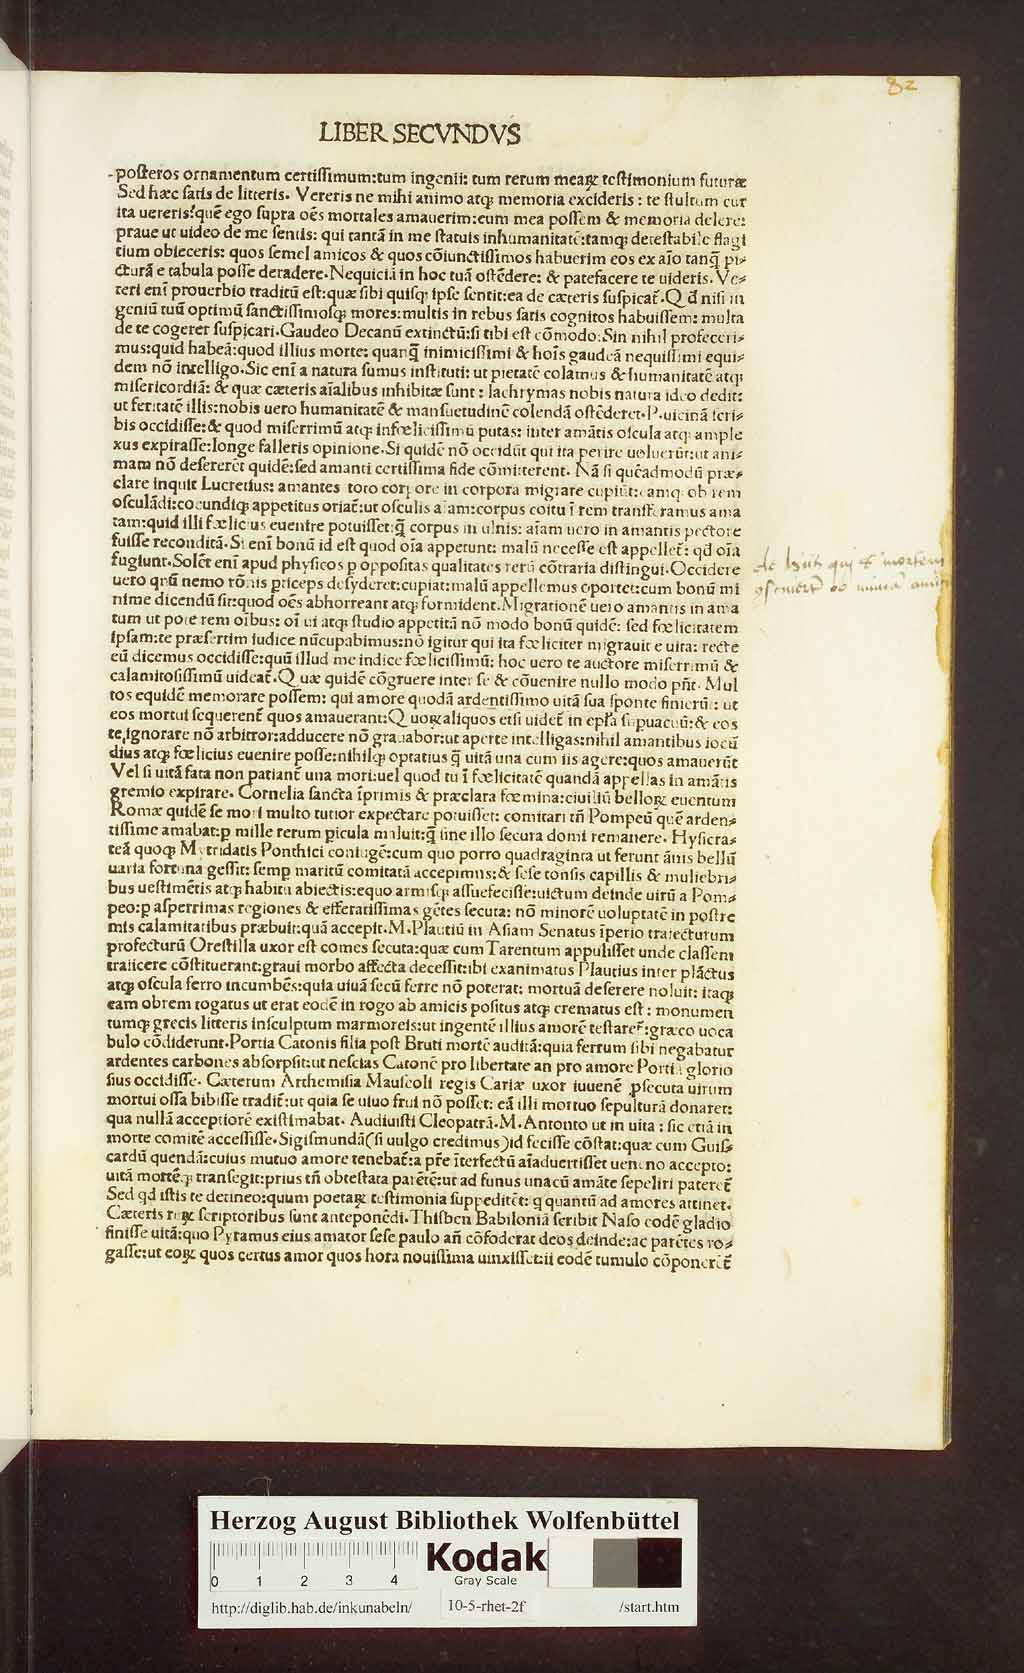 82
LIBER SECVNDVS
posteros ornamentum certissimum:tum ingenii: tum rerum meaꝝ testimonium futuræ
Sed hæc satis de litteris. Vereris ne mihi animo atqꝫ memoria excideris : te stultum cur
ita uereris?quē ego supra oēs mortales amauerim:eum mea possem & memoria delere:
praue ut uideo de me sentis: qui tantā in me statuis inhumanitatē:tamqꝫ detestabile flagi
tium obieceris: quos semel amicos & quos cōiunctissimos habuerim eos ex aīo tanq̄ pi-
cturā e tabula posse deradere. Nequiciā in hoc tuā ostēdere: & patefacere te uideris. Ve-
teri enī prouerbio traditū est:quæ sibi quisqꝫ ipse sentit:ea de cæteris suspicat̄. Q d̄ nisi in
geniū tuū optimū sanctissimosqꝫ mores:multis in rebus satis cognitos habuissem: multa
de te cogerer suspicari. Gaudeo Decanū extinctū:si tibi est cōmodo. Sin nihil profeceri-
mus:quid habeā:quod illius morte: quanq̄ inimicissimi & hoīs gaudeā nequissimi equi-
dem nō intelligo. Sic enī a natura sumus instituti: ut pietatē colamus & humanitatē atqꝫ
misericordiā: & quæ cæteris aīalibus inhibitæ sunt : lachrymas nobis natura ideo dedit:
ut feritatē illis:nobis uero humanitatē & mansuetudinē colendā ostēderet. P. uicinā scri-
bis occidisse: & quod miserrimū atqꝫ infœlicissimū putas: inter amātis oscula atqꝫ ample
xus expirasse:longe falleris opinione. Si quidē nō occidūt qui ita perire uoluerūt:ut ani-
mam nō desererēt quidē:sed amanti certissima fide cōmitterent. Nā si quēadmodū præ-
clare inquit Lucretius: amantes toto corpore in corpora migrare cupiūt: eamqꝫ ob rem
osculādi:coeundiqꝫ appetitus oriat̄:ut osculis aīam:corpus coitu ī rem transferamus ama
tam:quid illi fœlicius euenire potuisset:q̄ corpus in ulnis: aīam uero in amantis pectore
fuisse reconditā. Si enī bonū id est quod oīa appetunt: malū necesse est appellet̄: qd oīa
fugiunt. Solēt enī apud physicos p oppositas qualitates rerū cōtraria distingui. Occidere
uero qrū nemo rōnis prīceps desyderet:cupiat:malū appellemus oportet:cum bonū mi
nime dicendū sit:quod oēs abhorreant atqꝫ formident. Migrationē uero amantis in ama
tum ut pote rem oībus: oī ui atqꝫ studio appetitā nō modo bonū quidē: sed fœlicitatem
ipsam:te præsertim iudice nūcupabimus:nō igitur qui ita fœliciter migrauit e uita: recte
eū dicemus occidisse:quū illud me indice fœlicissimū: hoc uero te auctore miserrimū &
calamitosissimū uideat̄. Quæ quidē cōgruere inter se & cōuenire nullo modo pn̄t. Mul
tos equidē memorare possem: qui amore quodā ardentissimo uitā sua sponte finierūt: ut
eos mortui sequerent̄ quos amauerant:Quoꝝ aliquos etsi uidet̄ in epl̄a supuacuū:& eos
te ignorare nō arbitror:adducere nō grauabor:ut aperte intelligas:nihil amantibus iocū
dius atqꝫ fœlicius euenire posse:nihilqꝫ optatius q̄ uitā una cum iis agere:quos amauerūt
Vel si uitā fata non patiant̄ una mori:uel quod tu ī fœlicitatē quandā appellas in amātis
gremio expirare. Cornelia sancta īprimis & præclara fœmina:ciuiliū belloꝝ euentum
Romæ quidē se mori multo tutior expectare potuisset: comitari tn̄ Pompeū quē arden-
tissime amabat:p mille rerum picula maluit:q̄ sine illo secura domi remanere. Hysicra-
teā quoqꝫ Mytridatis Ponthici coniugē:cum quo porro quadraginta ut ferunt ānis bellū
uaria fortuna gessit: semp maritū comitatā accepimus:& sese tonsis capillis & muliebri-
bus uestimētis atqꝫ habitu abiectis:equo armisqꝫ assuefecisse:uictum deinde uirū a Pom-
peo:p asperrimas regiones & efferatissimas gētes secuta: nō minorē uoluptatē in postre
mis calamitatibus præbuit:quā accepit. M. Plautiū in Asiam Senatus īperio traiecturum
profecturū Orestilla uxor est comes secuta:quæ cum Tarentum appulisset unde classem
traiicere cōstituerant:graui morbo affecta decessit:ibi exanimatus Plautius inter plāctus
atqꝫ oscula ferro incumbēs:quia uiuā secū ferre nō poterat: mortuā deserere noluit: itaqꝫ
eam obrem rogatus ut erat eodē in rogo ab amicis positus atqꝫ crematus est : monumen
tumqꝫ grecis litteris insculptum marmoreis:ut ingentē illius amorē testaret̄:græco uoca
bulo cōdiderunt. Portia Catonis filia post Bruti mortē auditā:quia ferrum sibi negabatur
ardentes carbones absorpsit:ut nescias Catonē pro libertate an pro amore Portia glorio
sius occidisse. Cæterum Arthemisia Mauseoli regis Cariæ uxor iuuenē ꝓsecuta uirum
mortui ossa bibisse tradit̄:ut quia se uiuo frui nō posset: eā illi mortuo sepulturā donaret:
qua nullā acceptiorē existimabat. Audiuisti Cleopatrā. M. Antonto ut in uita : sic etiā in
morte comitē accessisse. Sigismundā(si uulgo credimus)id fecisse cōstat:quæ cum Guis-
cardū quendā:cuius mutuo amore tenebat̄:a pr̄e īterfectū aīaduertisset ueneno accepto:
uitā mortēqꝫ transegit:prius tn̄ obtestata parētē:ut ad funus unacū amāte sepeliri pateret̄
Sed qd istis te detineo:quum poetaꝝ testimonia suppeditēt: q quantū ad amores attinet.
Cæteris reꝝ scriptoribus sunt anteponēdi. Thisben Babiloniā scribit Naso eodē gladio
finisse uitā:quo Pyramus eius amator sese paulo añ cōfoderat deos deinde:ac parētes ro-
gasse:ut eoꝝ quos certus amor quos hora nouissima uinxisset:ii eodē tumulo cōponerēt̄
Herzog August Bibliothek Wolfenbüttel
0 1 2 3 4
Kodak
Gray Scale
http://diglib.hab.de/inkunabeln/ 10-5-rhet-2f /start.htm